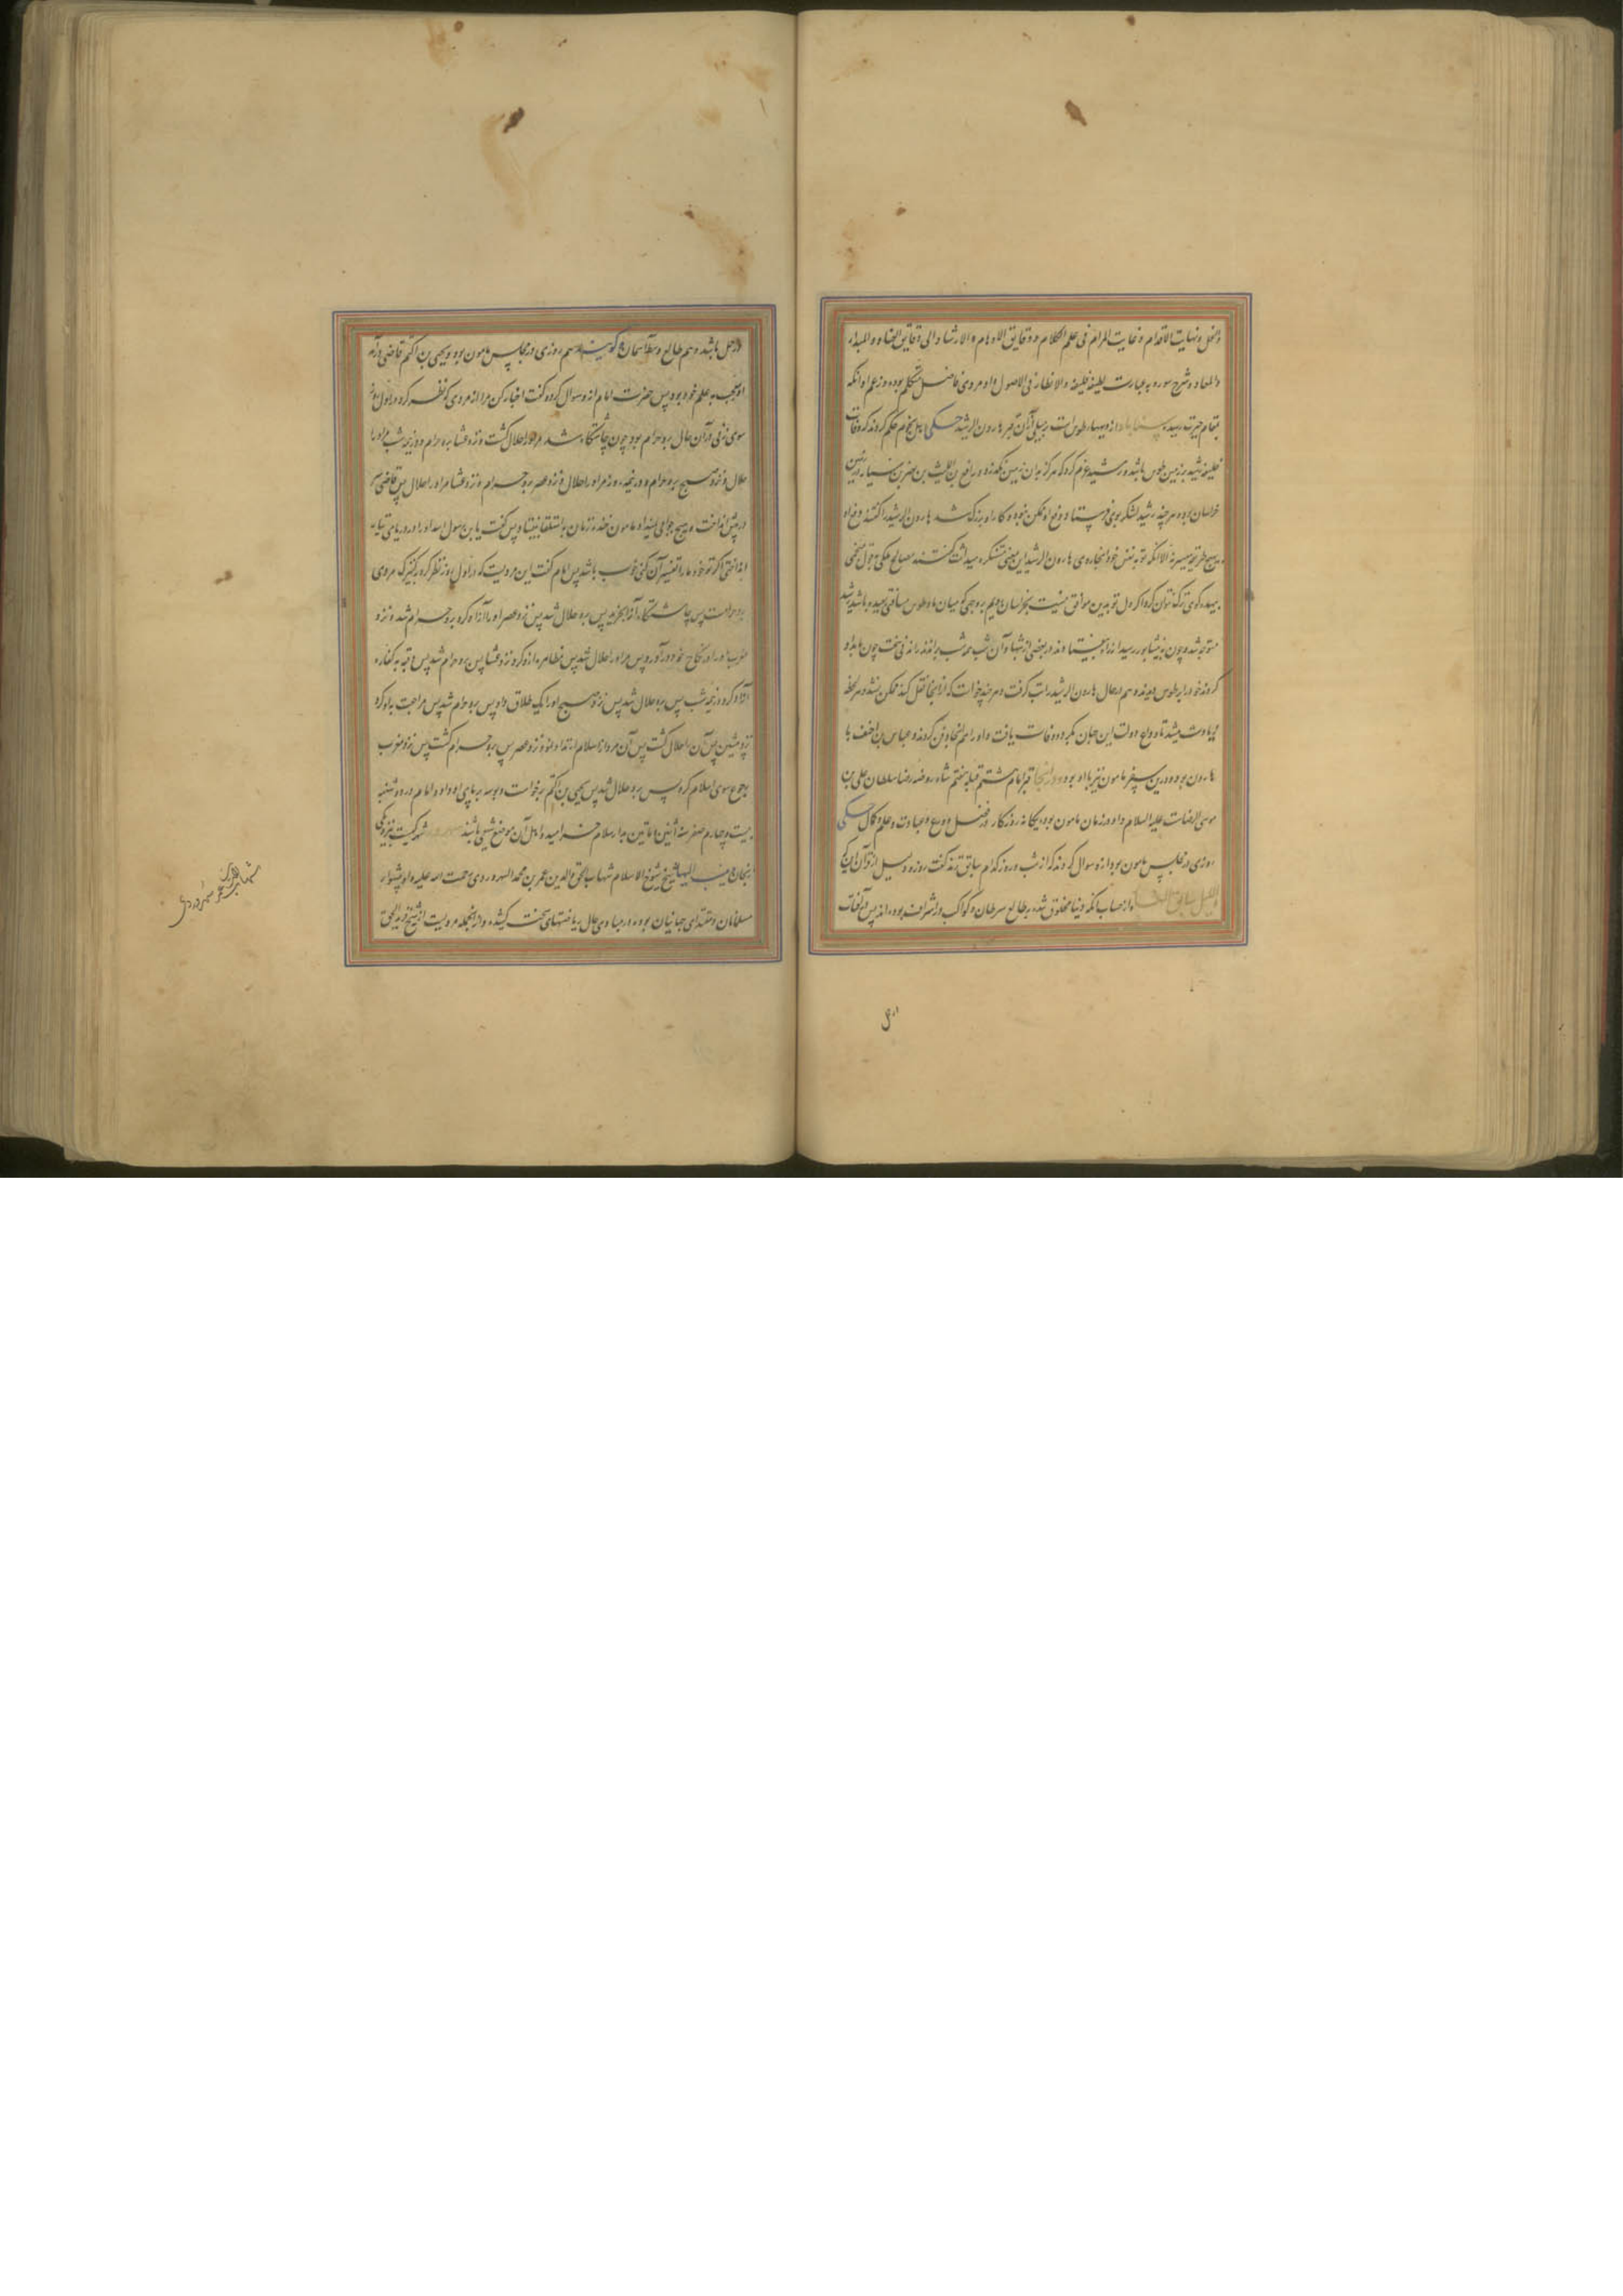 والنحل ونهایت الاقدام و غایت المرام فی علم الکلام و دقایق الاوهام و الارشاد الی دقایق العباد و المبداء
والمعاد و شرح سوره به عبارت لطیفه والانظار فی الاصول و او مردی فاضل متکلم بوده و زعم او انکه
بمقام حیرت رسیده سناباد از دیههاء طوس است بر یک میلی آن قبر هارون الرشید حکی اهل نجوم حکم کردند که وفات
خلیفه رشید بزمین طوس باشد و رشید عزم کرد که هرکز بدان زمین نکذرد و رافع بن اللیث بن نصر بن سیار در زمین
خراسان بود و هر چند رشید لشکر بوی فرستاد دفع او ممکن نبود و کار او بزرک شد هارون الرشید را کفتند دفع او
بهیچ طریق میسر نه الا انکه تو به نفس خود انجا روی هارون الرشید این معنی متنکر می داشت کفتند مصالح ملکی بقول منجمی
بیهده کوی ترک نتوان کرد اکر دل تو بدین موافق نیست بخراسان رویم بر وجهی که میان ما و طوس مسافتی بعید باشد رشید
متوجه شد و چون بنیشابور رسید از راه بیفتادند در بعضی از شبها و آن شب همه شب براندند راندنی سخت چون بامداد
کردند خود را بر طوس دیدند و هم در حال هارون الرشید را تب کرفت و هر چند خواست که از انجا نقل کند ممکن نشد و هر لحظه
زیادت میشد تا وداع دولت این جهان بکرد و وفات یافت و او را هم انجا دفن کردند و عباس بن احنف با
هارون بود و درین سفر مامون نیز با او بود و در انجا قبر امام هشتم قبله هفتم شاه روضه رضا سلطان علی بن
موسی الرضاست علیه السلام و او در زمان مامون بود یکانه روزکار در فضل و ورع و عبادت و علم و کمال حکی
روزی در مجلس مامون بود از و سوال کردند که از شب و روز کدام سابق ترند کفت روز و دلیل از قرآن این که
ولا اللیل سابق النهار و از حساب انکه دنیا مخلوق شد بطالع سرطان و کواکب در اشراف بوده اند پس آفتاب
در حمل
در حمل باشد و هم طالع وسط آسمان کویند هم روزی در مجلس مامون بود و یحیی بن اکثم قاضی در آمد
او معجب به علم خود بود پس حضرت امام از و سوال کرد و کفت اخبار کن مرا از مردی که نظر کرد در اول روز
سوی زنی در آن حال برو حرام بود چون چاشتکاه شد مر او را حلال کشت و نزد عشا برو حرام و در نیمه شب مر او را
حلال و نزد صبح برو حرام و در نیمه روز مر او را حلال و نزد عصر برو حرام و نزد عشا مر او را حلال پس قاضی سر
در پیش انداخت و هیچ جوابی نداد مامون خنده زنان پس کفت یا بن رسول الله او را در دریایی
انداختی اکر تو خود ما را تفسیر آن کنی خوب باشد پس امام کفت این مردیست که در اول روز نظر کرد بر کنیزک مردی
برو حرامست پس چاشتکاه آنرا بخرید پس برو حلال شد پس نزد عصر او را آزاد کرد برو حرام شد و نزد
مغرب او را در نکاح خود در آورد پس مر او را حلال شد پس مظاهره از و کرد نزد عشا پس برو حرام شد پس رقبه به کفاره
آزاد کرد در نیمه شب پس برو حلال شد پس نزد صبح او را یک طلاق داد پس برو حرام شد پس مراجعت باو کرد
نزد پیشین پس آن زن حلال کشت پس آن مرد از اسلام ارتداد نمود نزد عصر پس برو حرام کشت پس نزد مغرب
رجوع سوی اسلام کرد پس برو حلال شد پس یحیی بن اکثم برخواست و بوسه بر پای او داد و امام در دوشنبه
بیست و چهارم صفر سنه اثنین و مأتین بدار سلام خرامید و اهل آن موضع شیعی باشند سهرورد شهریست بنزدیکی
زنجان و ینسب الیها الشیخ شیخ الاسلام شهاب الحق و الدین عمر بن محمد السهروردی رحمت الله علیه و او پیشواء
مسلمانان و مقتدای جهانیان بوده و در مبادی حال ریاضتهای سخت کشیده و از انجمله مرویست از شیخ فرید الحق
شهاب الدین عمر سهروردی